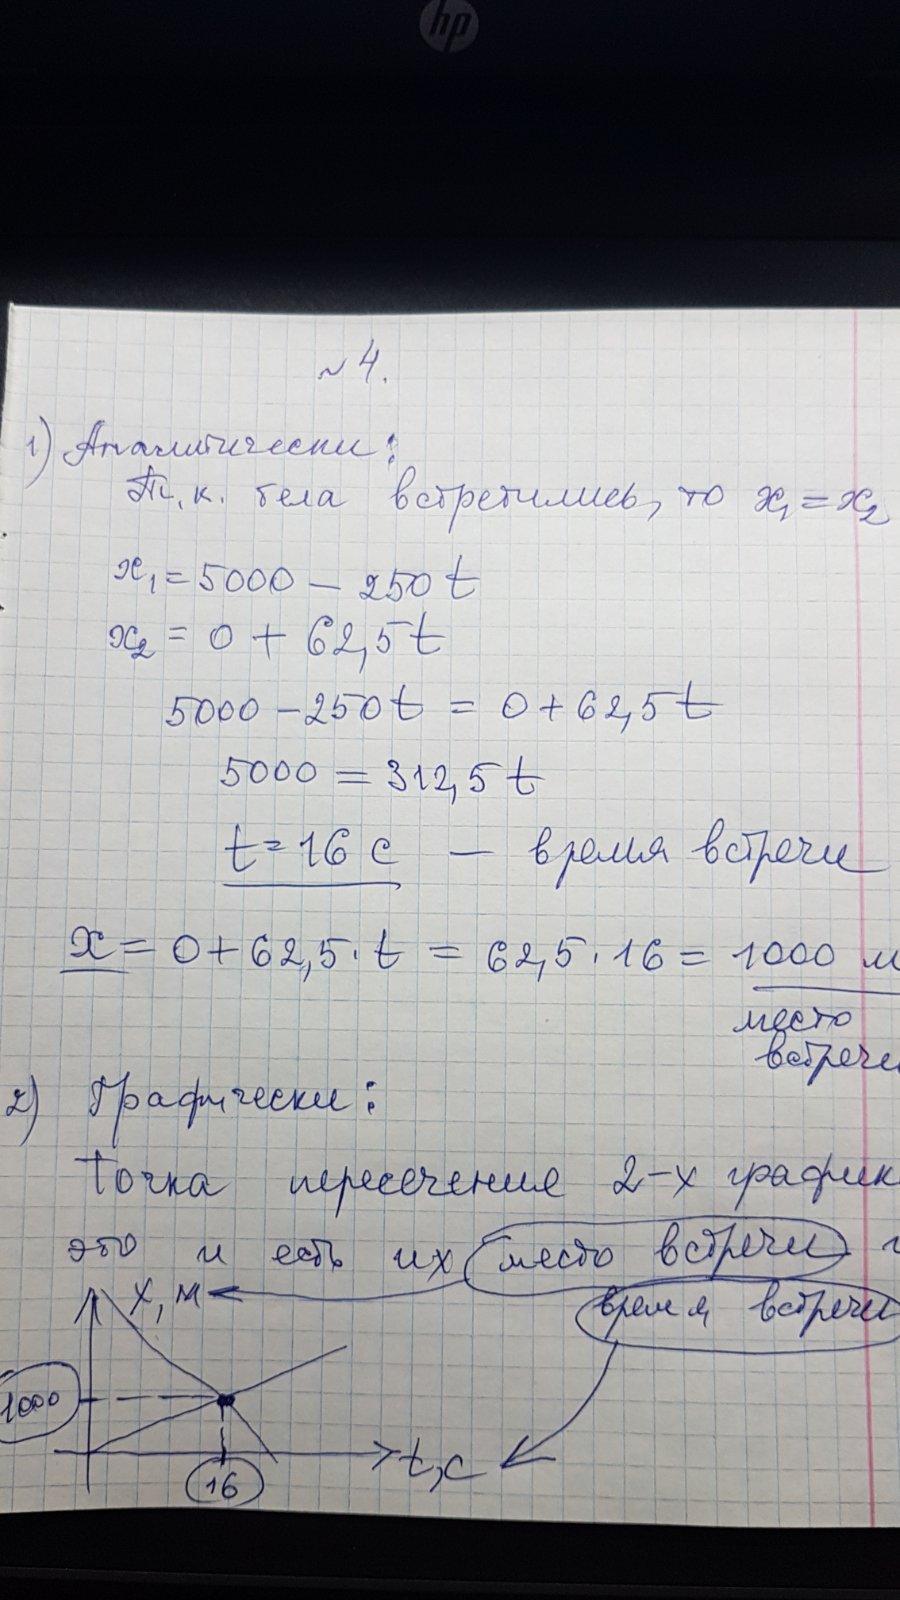 hp
№4.
1) Аналитически:
Т.к. тела встретились, то x₁ = x₂
x₁ = 5000 – 250t
x₂ = 0 + 62,5t
5000 – 250t = 0 + 62,5t
5000 = 312,5t
t = 16 с — время встречи
x = 0 + 62,5 · t = 62,5 · 16 = 1000 м
место
встречи
2) Графически:
Точка пересечение 2-х график
это и есть их место встречи и
время встречи
x, м
1000
t, с
16